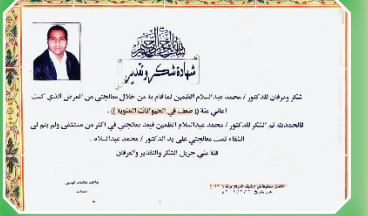 بسم الله الرحمن الرحيم
شهادة شكر وتقدير
شكر وعرفان للدكتور / محمد عبدالسلام الظمين لما قام به من خلال معالجتي من المرض الذي كنت
اعاني منة (( ضعف في الحيوانات المنويه )) .
فالحمدلله ثم الشكر للدكتور / محمد عبدالسلام الظمين فبعد معالجتي في اكثر من مستشفى ولم يتم لي
الشفاء تمت معالجتي على يد الدكتور / محمد عبدالسلام
فلة مني جزيل الشكر والتقدير والعرفان